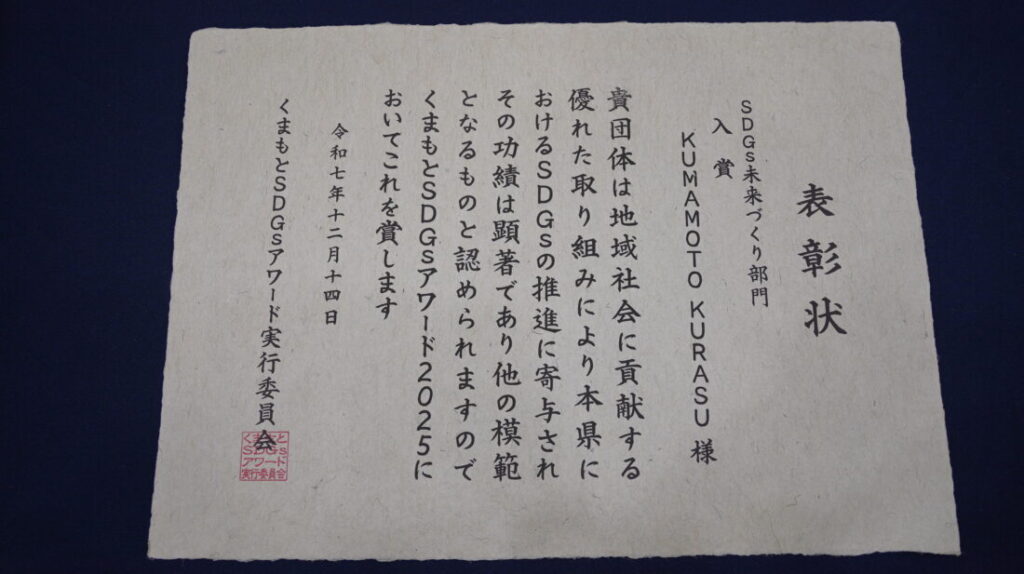 表彰状
SDGs未来づくり部門
入賞
KUMAMOTO KURASU 様
貴団体は地域社会に貢献する
優れた取り組みにより本県に
おけるSDGsの推進に寄与され
その功績は顕著であり他の模範
となるものと認められますので
くまもとSDGsアワード2025に
おいてこれを賞します
令和七年十二月十四日
くまもとSDGsアワード実行委員会
くまもと
SDGs
アワード
実行委員会